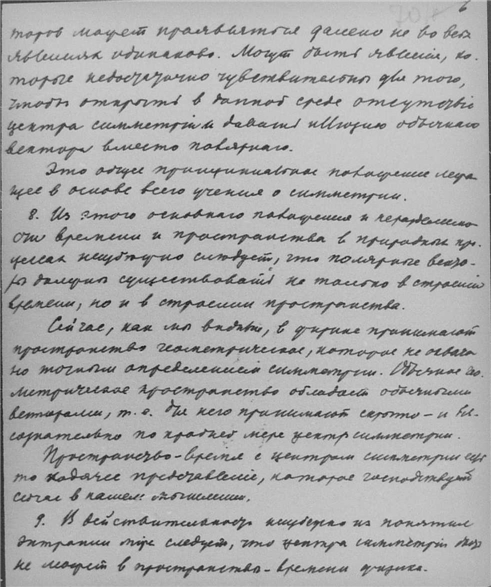 6
торов может проявляться далеко не во всех
явлениях одинаково. Могут быть явления, ко-
торые недостаточно чувствительны для того,
чтобы открыть в данной среде отсутствие
центра симметрии и давать иллюзию обычного
вектора вместо полярного.
Это общее принципиальное положение лежа
щее в основе всего учения о симметрии.
8. Из этого основного положения и нераздельно
сти времени и пространства в природных про
цессах неизбежно следует, что полярные векто-
ры должны существовать не только в строении
времени, но и в строении пространства.
Сейчас, как мы видели, в физике принимают
пространство геометрическое, которое не охваче
но точным определением симметрии. Обычное гео
метрическое пространство обладает обычными
векторами, т. е. для него принимают скрыто - и бес
сознательно по крайней мере центр симметрии.
Пространство-время с центром симметрии
то ходячее представление, которое господствует
сейчас в нашем мышлении.
9. В действительности неизбежно из понятия
энтропии следует, что центра симметрии
не может в пространстве-времени физика.